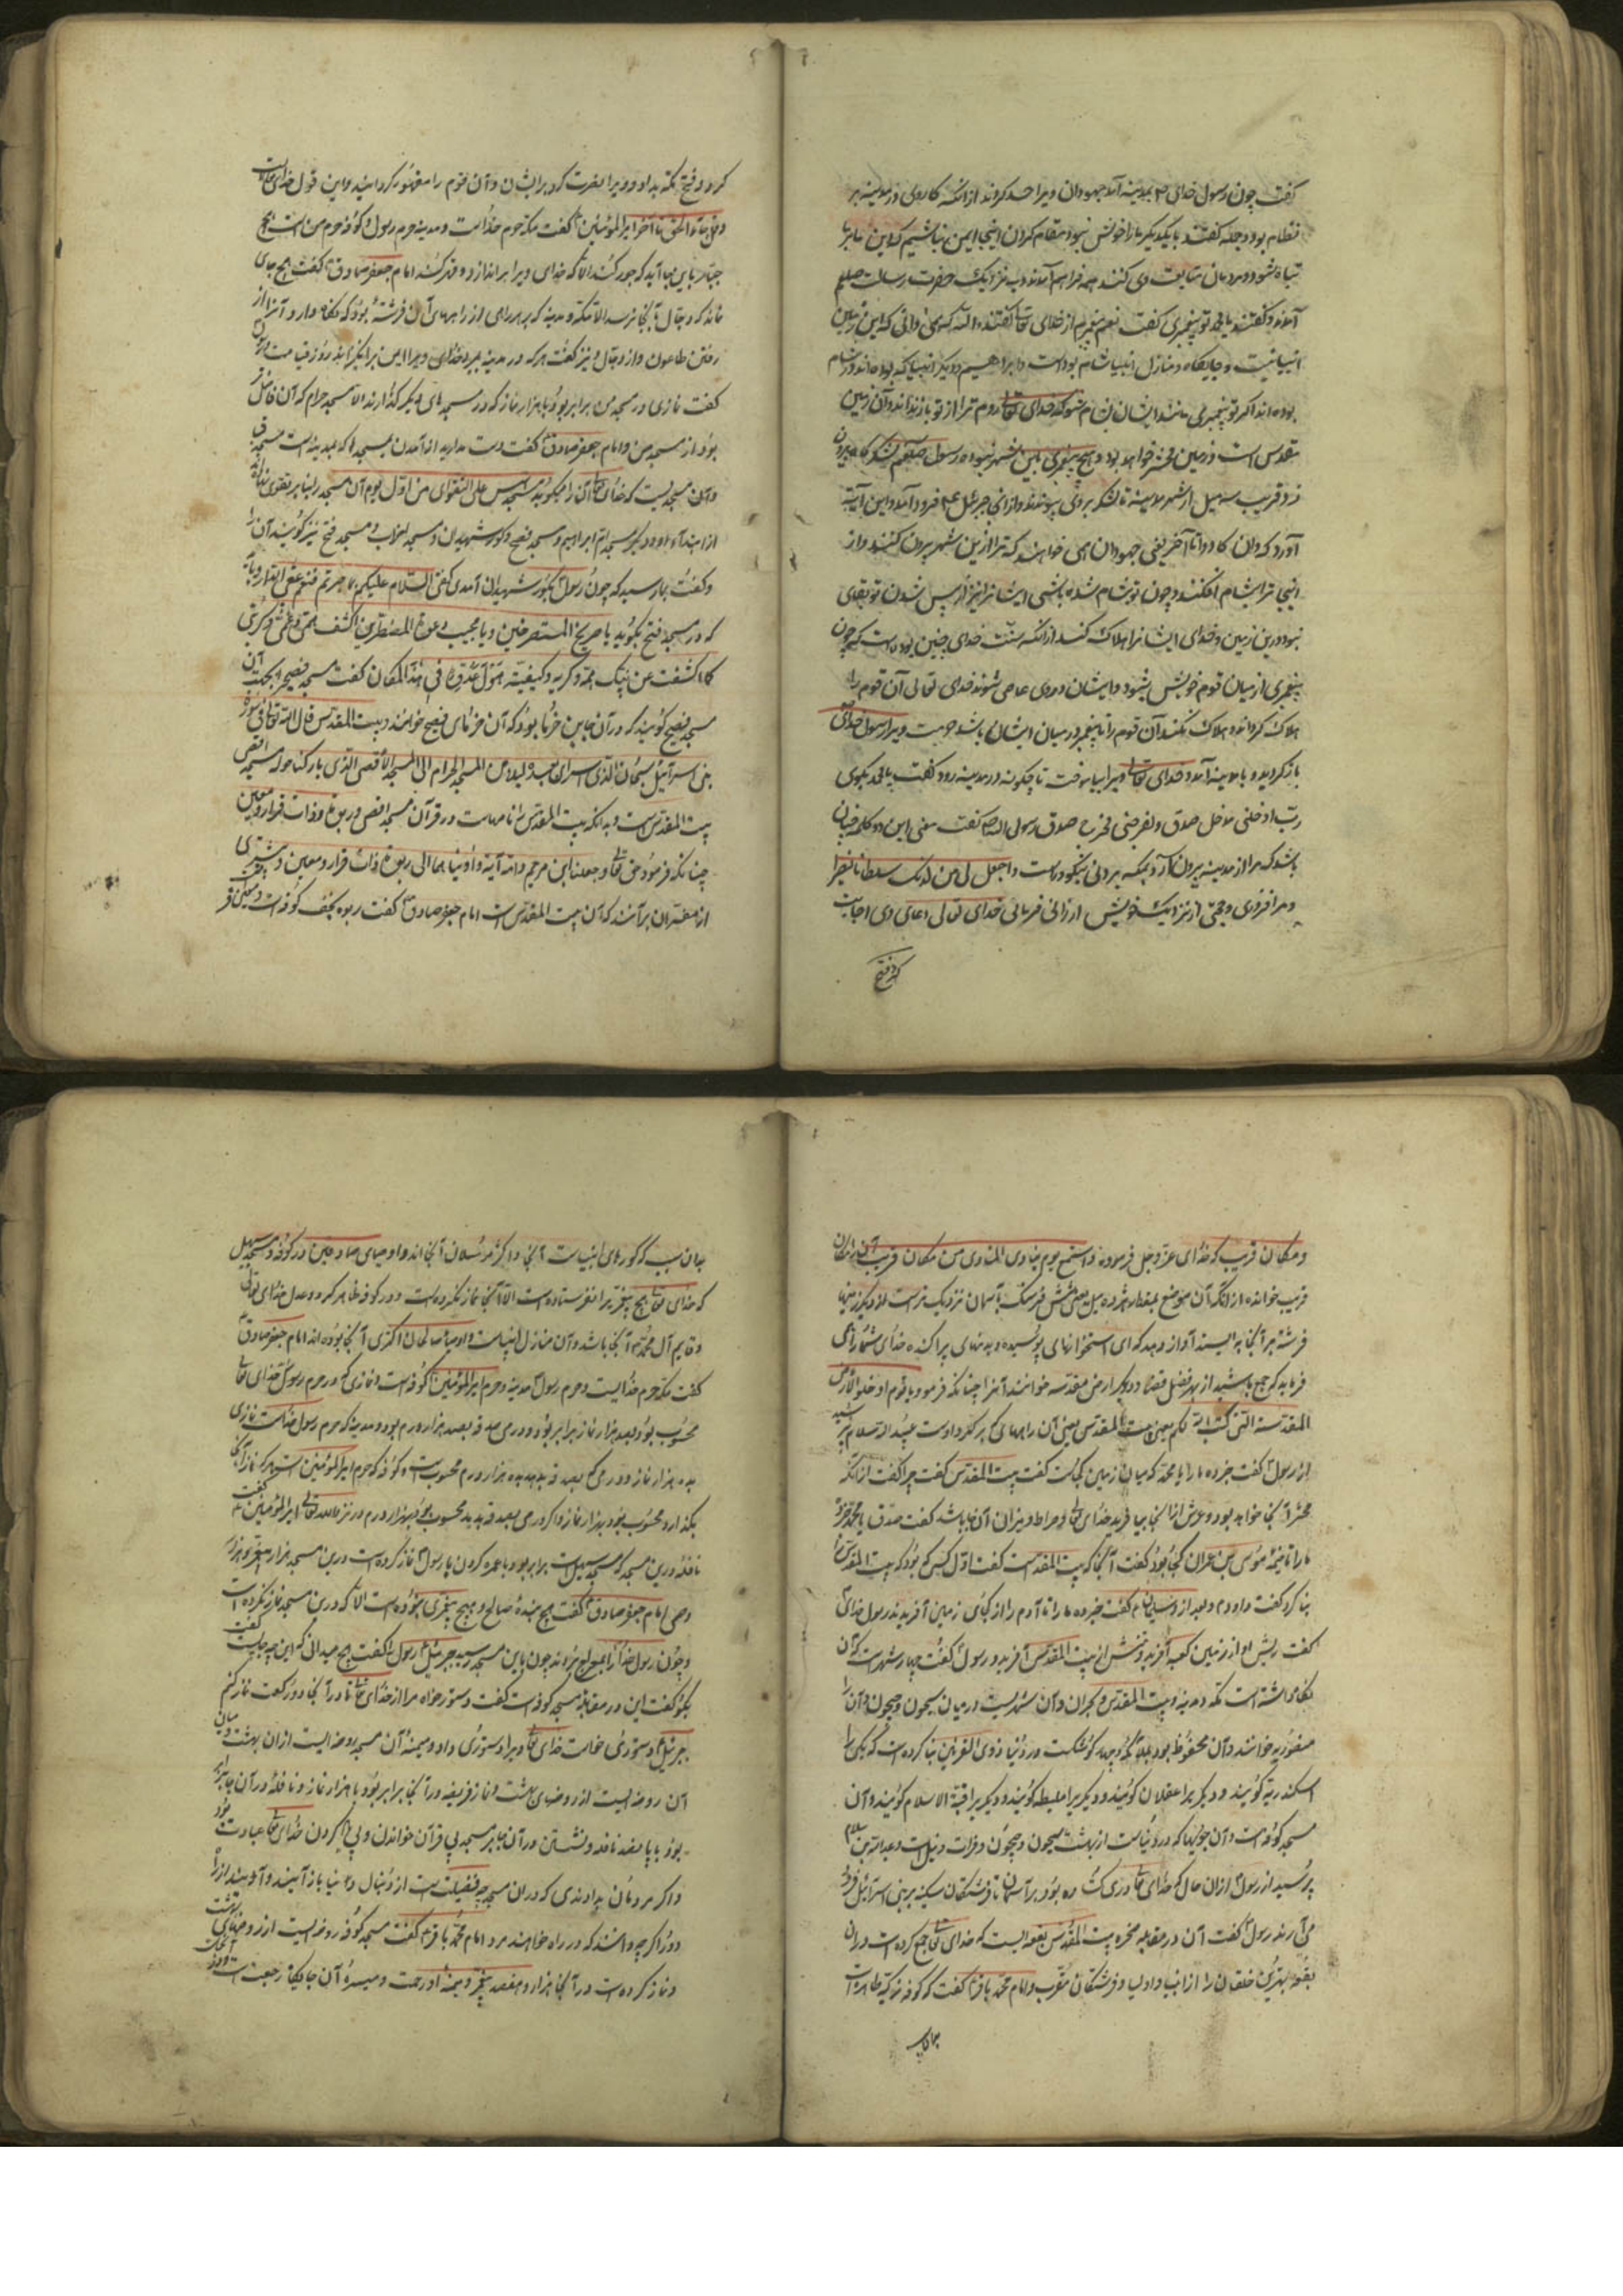 کفت چون رسول خدای بمدینه آمد جهودان ویرا حسد کردند ازانکه کار وی در مدینه بر
نظام بود و جمله کفتند با یکدیکر ما را خوش نبود مقام کردن اینجا ایمن نباشیم که این ما بر ما
تباه شود و مردمان متابعت وی کنند همه فراهم آمدند و بنزدیک حضرت رسالت صلعم
آمدند و کفتند یا محمد تو پیغمبری کفت نعم پیغمبرم از خدای تعالی کفتند والله که میدانی که این زمین
انبیا نیست و جایکاه و منازل انبیا شام بوده است و ابراهیم و دیکر انبیا که بوده اند در شام
بوده اند اکر تو پیغمبری مانند ایشان بشام شو که خدای تعالی روم ترا از تو باز دارد و آن زمین
مقدس است و زمین محشر خواهد بود و هیچ پیغمبری باین شهر نبوده رسول صلعم لشکرگاه بیرون
زد و قریب سه میل از شهر مدینه تا لشکر بر وی پیوندند و ازانجا جبرئیل ع فرود آمد و این آیت
آورد که وان کادوا تا آخر یعنی جهودان می خواهند که ترا ازین شهر بیرون کنند و از
اینجا ترا بشام افکنند و چون تو بشام شده باشی ایشانرا نیز از پس شدن تو بقای
نبود درین زمین و خدای ایشانرا هلاک کند ازانکه سنت خدای چنین بوده است که چون
پیغمبری از میان قوم خویش بشود و ایشان در وی عاصی شوند خدای تعالی آن قوم را
هلاک کرداند و هلاک نکند آن قوم را تا پیغمبر در میان ایشان باشد و حرمت ویرا رسول خدای
باز کردید و با مدینه آمد و خدای تعالی ویرا بیاموخت تا چکونه در مدینه رود کفت یا محمد بکوی
رب ادخلنی مدخل صدق و اخرجنی مخرج صدق رسول الله ص کفت معنی این دو کلمه چنان
باشد که مرا از مدینه بیرون آر و بمکه بر و آن نیکو و راست و اجعل لی من لدنک سلطانا نصیرا
و مرا فزوری و حجتی از نزدیک خویش ارزانی فرمای خدای تعالی دعای وی اجابت
کرد و فتح
کرد و فتح مکه بداد و ویرا نصرت کرد بر ایشان و آن قوم را مقهور کردانید و این قول خدای تعالی است
وقل جاء الحق تا آخر امیرالمؤمنین کفت مکه حرم خداست و مدینه حرم رسول و کوفه حرم من است هیچ
جباری باین جا نیاید که جور کند الا که خدای ویرا براندازد و قهر کند امام جعفر صادق کفت هیچ جای
نماند که دجال آنجا نرسد الا مکه و مدینه که بر هر راهی از راههای آن فرشته بود که نکاه دارد آنرا از
رفتن طاعون و از دجال و نیز کفت هر که در مدینه بمیرد خدای ویرا ایمن برانکیزاند روز قیامت
کفت نمازی در مسجد من برابر بود با هزار نماز که در مسجدهای دیکر کذارند الا مسجد حرام که آن فاضلتر
بود از مسجد من و امام جعفر صادق کفت دست مدارید از آمدن بمسجدها که بمدینه است مسجد قبا
و آن مسجدیست که خدای تعالی آن را میکوید لمسجد اسس علی التقوی من اول یوم آن مسجد را بنا بر تقوی نهاده اند
از ابتداء او و دیکر مسجد ام ابراهیم و مسجد فضیح و کور شهیدان و مسجد احزاب و مسجد فتح نیز کویند آن را
و کفت بما رسید که چون رسول بکور شهیدان آمدی کفتی السلام علیکم بما صبرتم فنعم عقبی الدار و باید
که در مسجد فتح بکویند یا صریخ المستصرخین و یا مجیب دعوة المضطرین اکشف همی و غمی و کربتی
کما کشفت عن نبیک همه و کربه و کفیته هول عدوه فی هذا المکان کفت مسجد فضیح از بهر آن
مسجد فضیح کویند که در آنجا این خرما بود که آن خرمای فضیح خوانند و بیت المقدس قال الله تعالی فی سورة
بنی اسرائیل سبحان الذی اسری بعبده لیلا من المسجد الحرام الی المسجد الاقصی الذی بارکنا حوله مسجد اقصی
بیت المقدس است و بدانکه بیت المقدس را نامهاست در قرآن مسجد اقصی و ربوة ذات قرار و معین
چنانکه فرمود حق تعالی وجعلنا ابن مریم و امه آیة و آویناهما الی ربوة ذات قرار و معین و بیشتری
از مفسران برآنند که آن بیت المقدس است امام جعفر صادق کفت ربوه نجف کوفه است و معین فرات
و مکان قریب که خدای عز و جل فرموده واستمع یوم یناد المنادی من مکان قریب آن مکانرا
قریب خوانده ازانکه آن موضع بمقدار هژده میل یعنی شش فرسنک بآسمان نزدیکتر است از دیکر زمینها
فرشته بر آنجا بایستد آواز دهد که ای استخوانهای پوسیده و بدنهای پراکنده خدای شما را می
فرماید که جمع باشید از بهر فصل قضا و دیکر ارض مقدسه خوانند آنرا چنانکه فرمود یا قوم ادخلوا الارض
المقدسة التی کتب الله لکم یعنی بیت المقدس یعنی آن راههای که بر کرد اوست عبدالله سلام پرسید
از رسول کفت خبر ده ما را یا محمد که میان زمین کجاست کفت بیت المقدس کفت چرا کفت ازانکه
محشر آنجا خواهد بود و عرش ازانجا بیافرید خدای تعالی و صراط و میزان آنجا باشد کفت صدق یا محمد خبر ده
ما را تا خیمه موسی بن عمران کجا بود کفت آنجا که بیت المقدس است کفت اول کسی که بود که بیت المقدس را
بنا کرد کفت داود و بعد ازو سلیمان کفت خبر ده ما را تا آدم را از کجای زمین آفریدند رسول خدای
کفت ریش او از زمین کعبه آفرید و تنش از بیت المقدس آفرید و رسول کفت چهار شهرست که آن
نکاه داشته است مکه و مدینه و بیت المقدس و نجران و آن شهریست در میان سیحون و جیحون و آن را
منصوریه خوانند و آن محفوظ بود بملایکه و چهار کوشکست در دنیا ذوی القرنین بنا کرده است که یکی را
اسکندریه کویند و دیکر را عسقلان کویند و دیکر را ملیطه کویند و دیکر را قبة الاسلام کویند و آن
مسجد کوفه است و آن جویها که در دنیاست از بهشت سیحون و جیحون و فرات و نیل است و عبدالله بن سلام
پرسید از رسول ازان حال که خدای تعالی دری کشاده بود بر آسمان تا فرشتکان سکینه بر بنی اسرائیل فرود
می آرند رسول کفت آن در مقابله صخره بیت المقدس بقعه ایست که خدای تعالی جمع کرده است دران
بقعه بهترین خلقان را از انبیا و اولیا و فرشتکان مقرب و امام محمد باقر کفت که کوفه زکیه طاهره است
بدان سبب که کورهای انبیاست آنجا و اکثر مرسلان آنجا اند و اوصیای صادقین در کوفه و مسجد سهیل
که خدای تعالی هیچ پیغمبر را نفرستاده است الا آنجا نماز نکرده است و در کوفه ظاهر کردد عدل خدای تعالی
و قایم آل محمد آنجا باشد و آن منازل انبیاست و اوصیا صالحان اکثری آنجا بوده اند امام جعفر صادق
کفت مکه حرم خدایست و حرم رسول مدینه و حرم امیرالمؤمنین کوفه است و نمازی که در حرم رسول خدای تعالی
محسوب بود بصد هزار نماز برابر بود و درمی صدقه بصد هزار درم بود و مدینه که حرم رسول خداست نمازی
بده هزار نماز و درمی که بصدقه بدهد بده هزار درم محسوب است و کوفه که حرم امیرالمؤمنین است هر که نماز آنجا
بکذارد محسوب بود بهزار نماز و اکر درمی بصدقه بدهد محسوب بود بهزار درم در نزد الله تعالی امیرالمؤمنین کفت
نافله درین مسجد که مسجد سهیل است برابر بود با عمره کردن با رسول نماز کرده است درین مسجد هزار پیغمبر و هزار
وصی امام جعفر صادق کفت هیچ بنده صالح و هیچ پیغمبری نبوده است الا که درین مسجد نماز نکرده است
و چون رسول خدا را بمعراج بردند چون باین مسجد رسید جبرئیل رسول را کفت هیچ میدانی که این چه جایست کفت
بکو کفت این در مقابله مسجد کوفه است کفت دستور خواه مرا از خدای تعالی تا در آنجا دو رکعت نماز کنم
جبرئیل دستوری خواست خدای تعالی ویرا دستوری داد و میمنه آن مسجد روضه ایست ازان بهشت و میان
آن روضه ایست از روضهای بهشت و نماز فریضه در آنجا برابر بود با هزار نماز و نافله در آن جا برابر
بود با پانصد نافله و نشستن در آن جا بر مسجد بی قرآن خواندن و بی ذکر کردن خدای تعالی عبادت بود
و اکر مردمان بدانندی که دران مسجد چه فضیلت است از دنبال دنیا باز آیند و آهوبند از راه
دور اکرچه دانند که در راه خواهند مرد امام محمد باقر کفت مسجد کوفه روضه ایست از روضهای بهشت
و نماز کرده است در آنجا هزار و هفصد پیغمبر و میمنه او رحمت و میسره آن جایکاه رجعت است